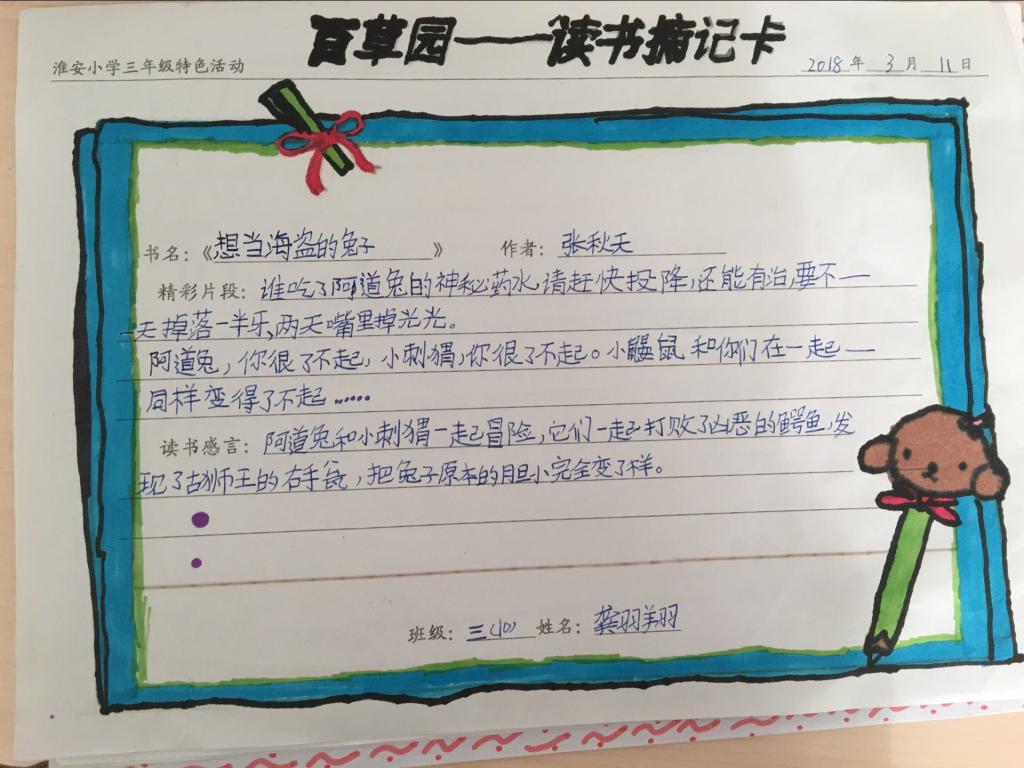 百草园——读书摘记卡
淮安小学三年级特色活动 2018年3月11日
书名:《想当海盗的兔子》 作者:张秋天
精彩片段:谁吃了阿道兔的神秘药水,请赶快投降,还能有治,要不一
天掉落一半牙,两天嘴里掉光光。
阿道兔,你很了不起,小刺猬,你很了不起。小鼹鼠和你们在一起一
同样变得了不起……
读书感言:阿道兔和小刺猬一起冒险,它们一起打败了凶恶的鳄鱼,发
现了古狮王的右手瓮,把兔子原本的胆小完全变了样。
班级:三(10) 姓名:龚羽翔羽